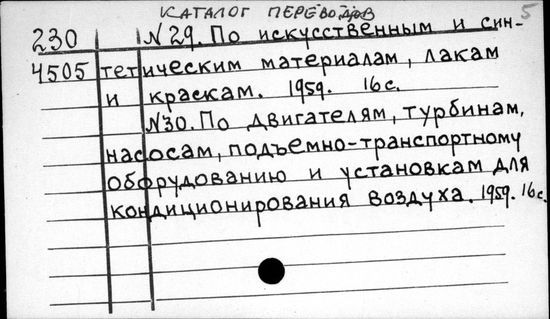 КАТАЛОГ ПЕРЕВОДОВ
5
230 N 29. По искусственным и син-
4505 тетическим материалам, лакам
и краскам. 1959. 16 с.
N30. По двигателям, турбинам,
насосам, подъемно-транспортному
оборудованию и установкам для
кондиционирования воздуха. 1959. 16 с.